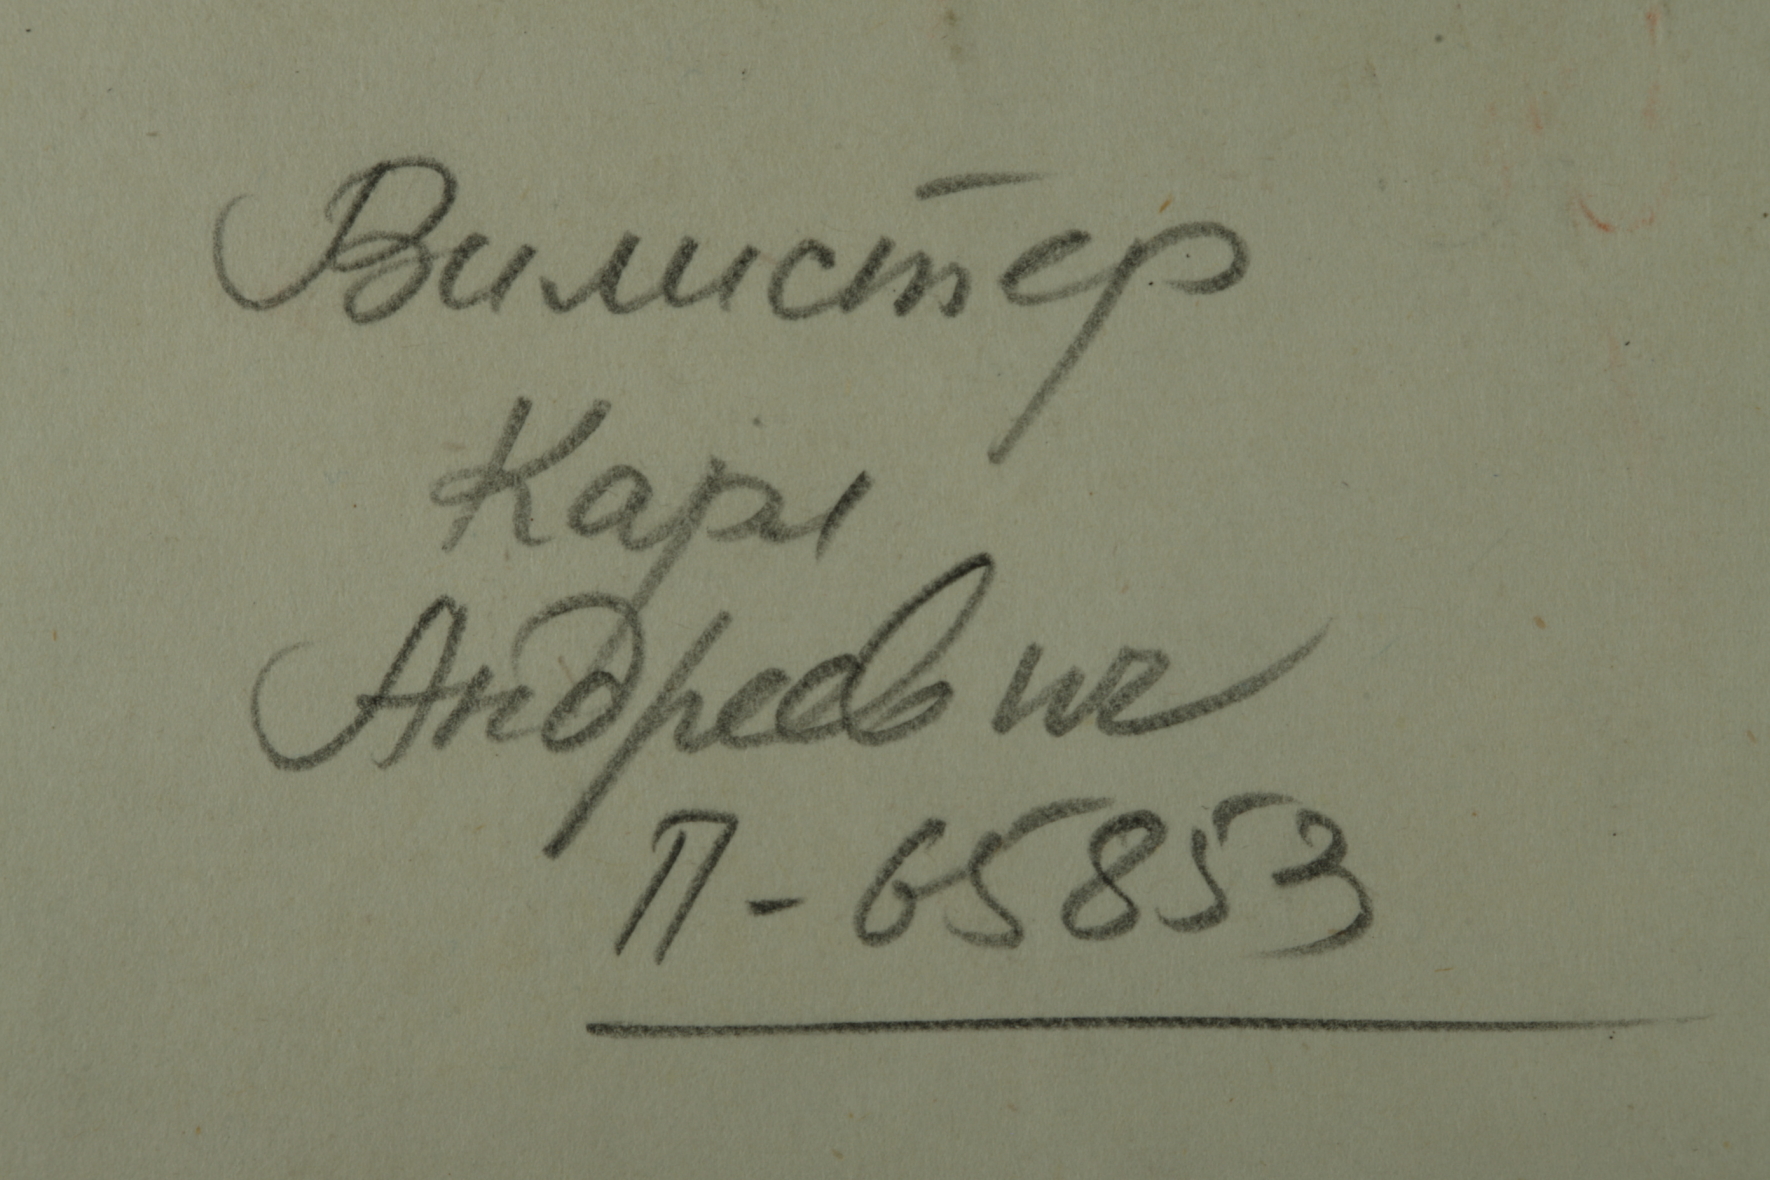 Вилистер
Карл
Андреевич
П-65853